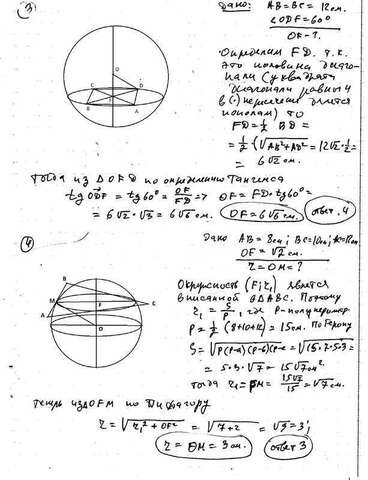 3
Дано: AB=BC=12см.
∠ODF=60°
OF-?
Определим FD. т.к.
это половина диаго-
нали (у квадрата
диагонали равны и
в (·) пересечения делятся
пополам) то
FD=½ BD=
=½ √AB²+AB² = 12√2·½=
= 6√2 см.
тогда из ΔOFD по определению тангенса
tg ODF = tg60° = OF/FD => OF=FD·tg60°=
= 6√2 · √3 = 6√6 см. OF=6√6 см. ответ. 4
4
Дано AB=8см; BC=10см; AC=12см
OF=√2 см.
r=OM=?
Окружность (F; r₁) является
вписанной в ΔABC. Поэтому
r₁=S/P, где P-полупериметр
P=½(8+10+12)=15см. По Герону
S=√P(P-a)(P-b)(P-c) = √15·7·5·3 =
= 5·3·√7 = 15√7 см².
тогда r₁=FM=15√7/15=√7 см.
теперь из ΔOFM по Пифагору
r=√r₁²+OF² = √7+2 = √9=3;
r=OM=3см. ответ 3